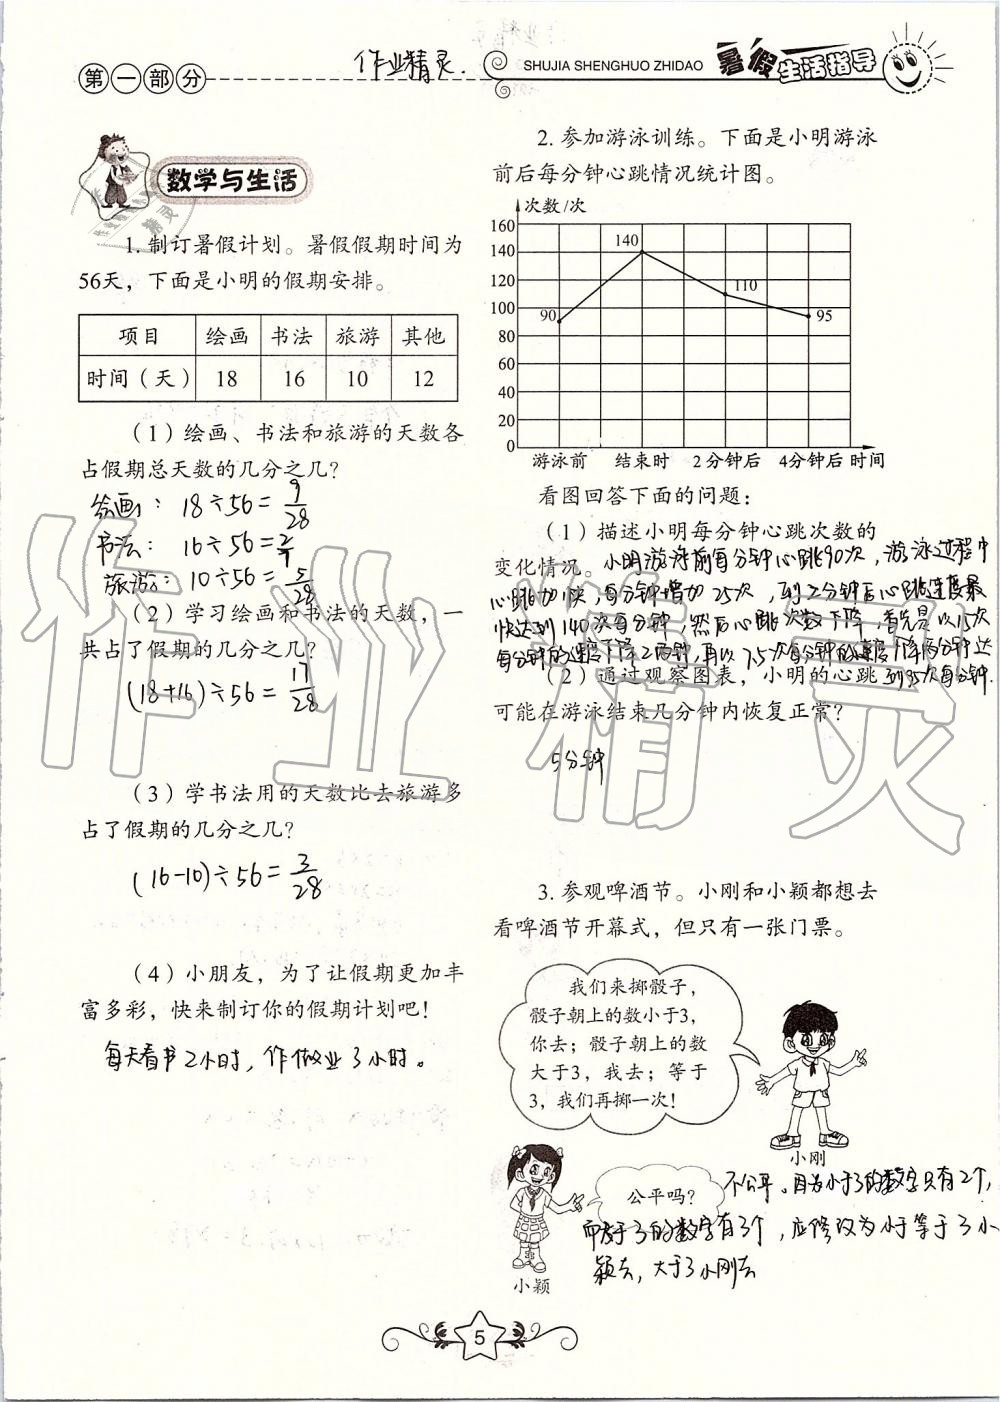 第一部分
作业精灵.
SHUJIA SHENGHUO ZHIDAO
暑假生活指导
数学与生活
1. 制订暑假计划。暑假假期时间为
56天，下面是小明的假期安排。
项目 绘画 书法 旅游 其他
时间（天） 18 16 10 12
（1）绘画、书法和旅游的天数各
占假期总天数的几分之几？
绘画：18÷56=9/28
书法：16÷56=2/7
旅游：10÷56=5/28
（2）学习绘画和书法的天数，一
共占了假期的几分之几？
(18+16)÷56=17/28
（3）学书法用的天数比去旅游多
占了假期的几分之几？
(16-10)÷56=3/28
（4）小朋友，为了让假期更加丰
富多彩，快来制订你的假期计划吧！
每天看书2小时，作做业3小时。
2. 参加游泳训练。下面是小明游泳
前后每分钟心跳情况统计图。
次数/次
160
140
120
100
80
60
40
20
0
90
140
110
95
游泳前 结束时 2分钟后 4分钟后 时间
看图回答下面的问题：
（1）描述小明每分钟心跳次数的
变化情况。小明游泳前每分钟心跳90次，游泳过程中
心跳加快，每分钟增加25次，到2分钟后心跳速度最
快达到140次每分钟，然后心跳次数下降，首先是以15次
每分钟的速度下降2分钟，再以7.5次每分钟的速度下降两分钟达
（2）通过观察图表，小明的心跳 到95次每分钟.
可能在游泳结束几分钟内恢复正常？
5分钟
3. 参观啤酒节。小刚和小颖都想去
看啤酒节开幕式，但只有一张门票。
我们来掷骰子，
骰子朝上的数小于3，
你去；骰子朝上的数
大于3，我去；等于
3，我们再掷一次！
小刚
公平吗？
不公平。因为小于3的数字只有2个，
而大于3的数字有3个，应修改为小于等于3小
颖去，大于3小刚去
小颖
5
作业精灵